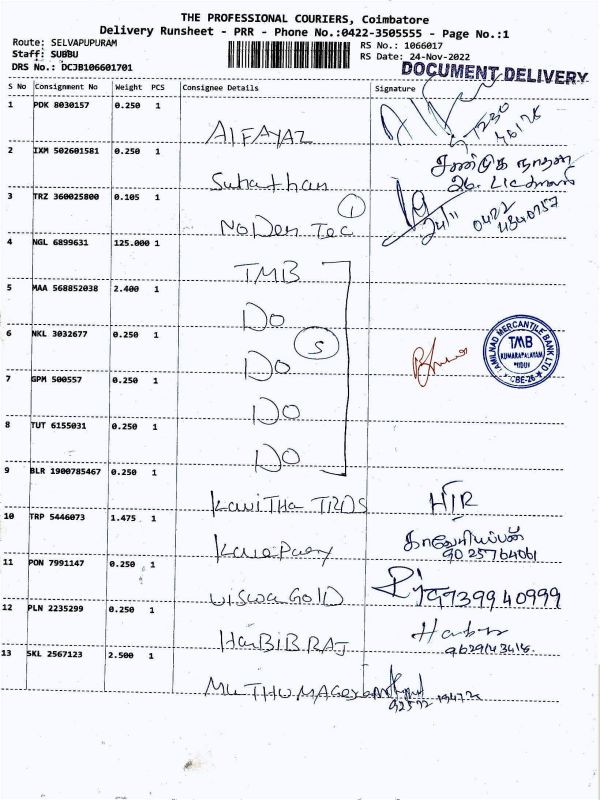 THE PROFESSIONAL COURIERS, Coimbatore
Delivery Runsheet - PRR - Phone No.:0422-3505555 - Page No.:1
Route: SELVAPUPURAM
RS No.: 1066017
Staff: SUBBU
RS Date: 24-Nov-2022
DRS No.: DCJB106601701
DOCUMENT DELIVERY
S No Consignment No Weight PCS Consignee Details Signature
1 PDK 8030157 0.250 1
AlFAYAZ
2 IXM 502601581 0.250 1
Suhathan
3 TRZ 360025800 0.105 1
1
NoDen Tec
24/11 0422
4 NGL 6899631 125.000 1
TMB
5 MAA 568852038 2.400 1
DO
6 NKL 3032677 0.250 1
DO
5
TAMILNAD MERCANTILE BANK LTD
TMB
7 GPM 500557 0.250 1
DO
8 TUT 6155031 0.250 1
DO
9 BLR 1900785467 0.250 1
KawiTHa TRDS
10 TRP 5446073 1.475 1
9025764061
11 PON 7991147 0.250 1
viswa GOlD 9739940999
12 PLN 2235299 0.250 1
HaBiB RAJ
13 SKL 2567123 2.500 1